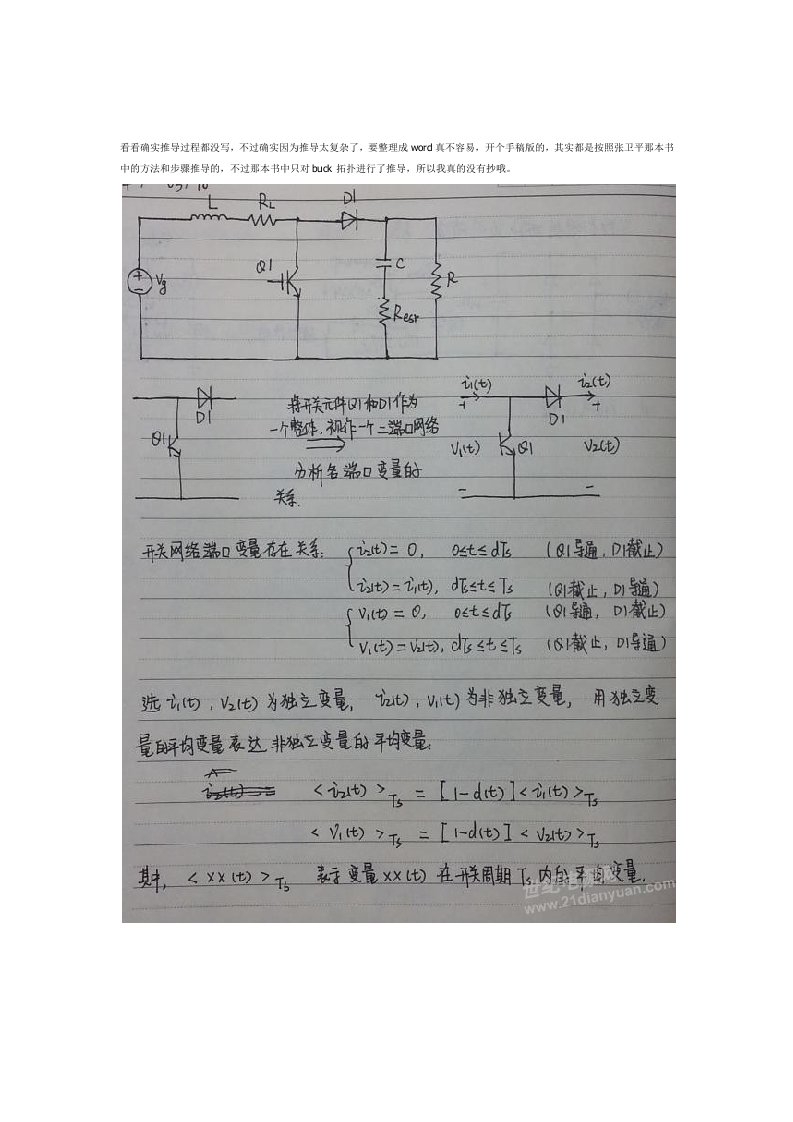 看看确实推导过程都没写，不过确实因为推导太复杂了，要整理成 word 真不容易，开个手稿版的，其实都是按照张卫平那本书
中的方法和步骤推导的，不过那本书中只对 buck 拓扑进行了推导，所以我真的没有抄哦。
L RL D1
Q1
Vg
C
R
Resr
D1
Q1
将开关元件Q1和D1作为
一个整体，视作一个二端口网络
分析各端口变量的
关系.
i1(t) i2(t)
+ +
D1
V1(t) Q1 V2(t)
− −
开关网络端口变量存在关系:
i2(t) = 0, 0≤t≤dTs (Q1导通, D1截止)
i2(t) = i1(t), dTs≤t≤Ts (Q1截止, D1导通)
V1(t) = 0, 0≤t≤dTs (Q1导通, D1截止)
V1(t) = V2(t), dTs≤t≤Ts (Q1截止, D1导通)
选 i1(t), V2(t) 为独立变量, i2(t), V1(t) 为非独立变量, 用独立变
量的平均变量表达非独立变量的平均变量:
< i2(t) >Ts = [1-d(t)] < i1(t) >Ts
< V1(t) >Ts = [1-d(t)] < V2(t) >Ts
其中, < xx(t) >Ts 表示变量xx(t) 在开关周期 Ts 内的平均变量.
www.21dianyuan.com